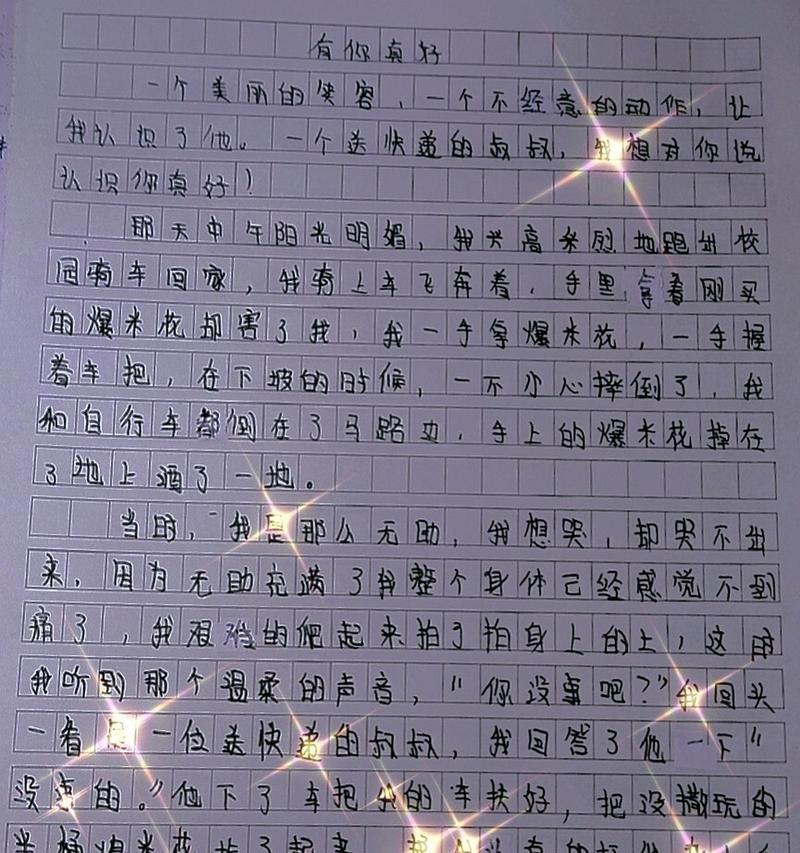 有你真好
一个美丽的笑容，一个不经意的动作，让
我认识了他。一个送快递的叔叔，我想对你说
认识你真好！
那天中午阳光明媚，我兴高采烈地跑出校
园骑车回家，我骑上车飞奔着，手里拿着刚买
的爆米花却害了我，我一手拿爆米花，一手握
着车把，在下坡的时候，一不小心摔倒了，我
和自行车都倒在了马路边，手上的爆米花掉在
了地上洒了一地。
当时，我是那么无助，我想哭，却哭不出
来，因为无助充满了我整个身体已经感觉不到
痛了，我艰难的爬起来拍了拍身上的土，这时
我听到那个温柔的声音，“你没事吧？”我回头
一看是一位送快递的叔叔，我回答了他一下“
没事的。”他下了车把我的车扶好，把没撒玩的
半桶爆米花拾了起来